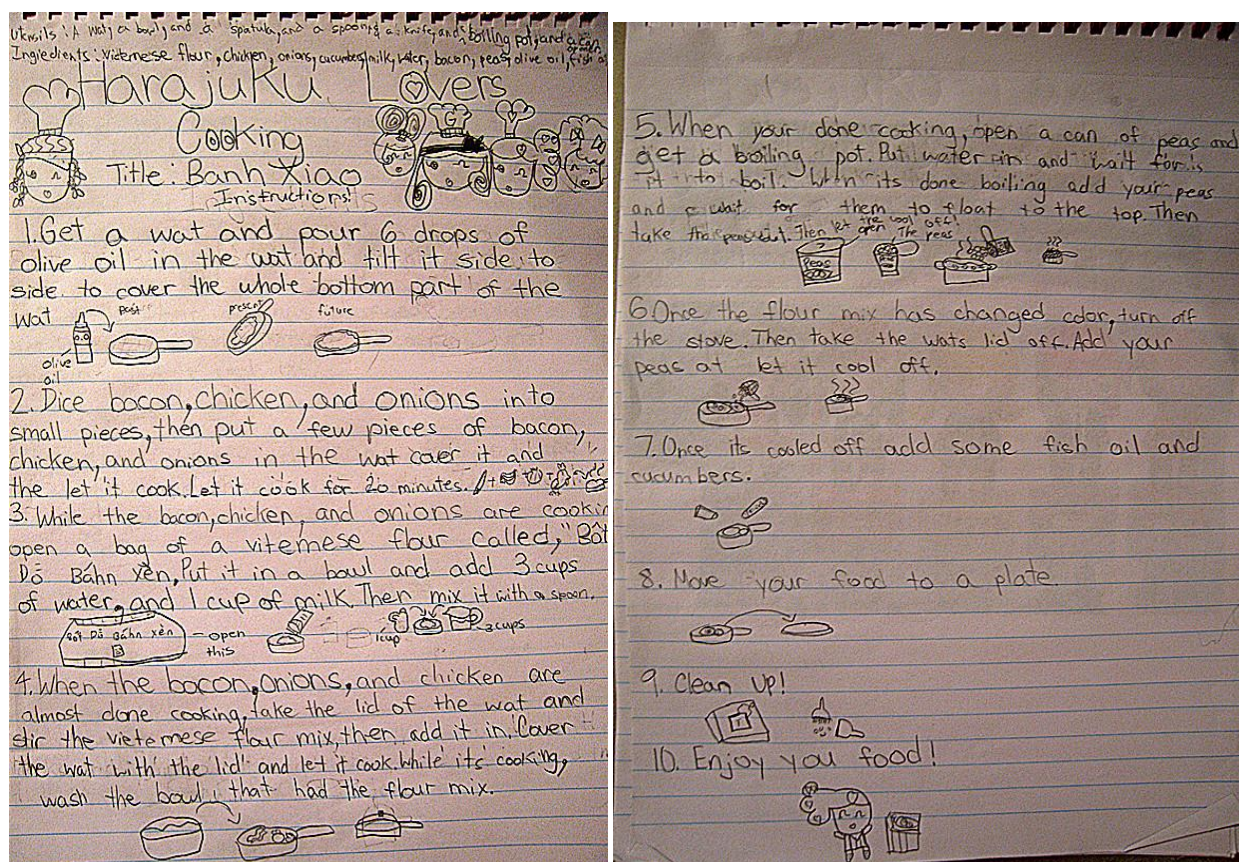 Utensils: A wat, a bowl, and a spatula, and a spoon, a knife, and boiling pot, and a can
Ingredients: Vieternese flour, chicken, onions, cucumber, milk, water, bacon, peas, olive oil, fish
Harajuku Lovers
Cooking
Title: Banh Xiao
Instructions:
1. Get a wat and pour 6 drops of
olive oil in the wat and tilt it side to
side to cover the whole bottom part of the
wat
past
present
future
olive
oil
2. Dice bacon, chicken, and onions into
small pieces, then put a few pieces of bacon,
chicken, and onions in the wat cover it and
the let it cook. Let it cook for 20 minutes.
3. While the bacon, chicken, and onions are cookin
open a bag of a viternese flour called, "Bột
Dổ Báhn xèn, Put it in a bowl and add 3 cups
of water, and 1 cup of milk. Then mix it with a spoon.
Bột Dổ Báhn xèn
open
this
1cup
3cups
4. When the bacon, onions, and chicken are
almost done cooking, take the lid of the wat and
stir the vieternese flour mix, then add it in. Cover
the wat with the lid and let it cook. While its cooking,
wash the bowl that had the flour mix.
5. When your done cooking, open a can of peas and
get a boiling pot. Put water in and wait for
it to boil. When its done boiling add your peas
and wait for them to float to the top. Then
take the peas out. Then let the cool off!
open The peas
Peas
6. Once the flour mix has changed color, turn off
the stove. Then take the wats lid off. Add your
peas at let it cool off.
7. Once its cooled off add some fish oil and
cucumbers.
8. Move your food to a plate.
9. Clean Up!
10. Enjoy you food!